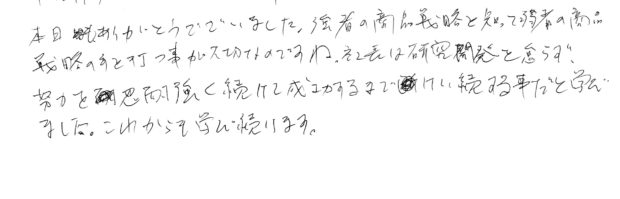 本日ありがとうございました。強者の商品戦略を知って弱者の商品
戦略の手を打つ事が大切なのですね。社長は研究開発を怠らず、
努力を忍耐強く続けて成功するまで継続する事だと学び
ました。これからも学び続けます。